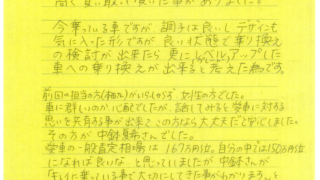 今乗っている車ですが、調子は良いしデザインも
気に入った形ですが、良い状態で乗り換え
の検討が出来たら更にレベルアップした
車への乗り換えが出来ると考えた為です。
前回の担当の方(柚九)がいらしゃらず、女性の方でした。
車に詳しいのか心配でしたが、話してみると愛車に対する
思いを共有する事が出来てこの方なら大丈夫だと感じました。
その方が中鉢 さんでした。
愛車の一般査定相場は167万円位。自分の中では150万円位
になれば良いな と思っていましたが 中鉢さんが
「キレイに乗っている事で大切にしてきた事がわかります。と